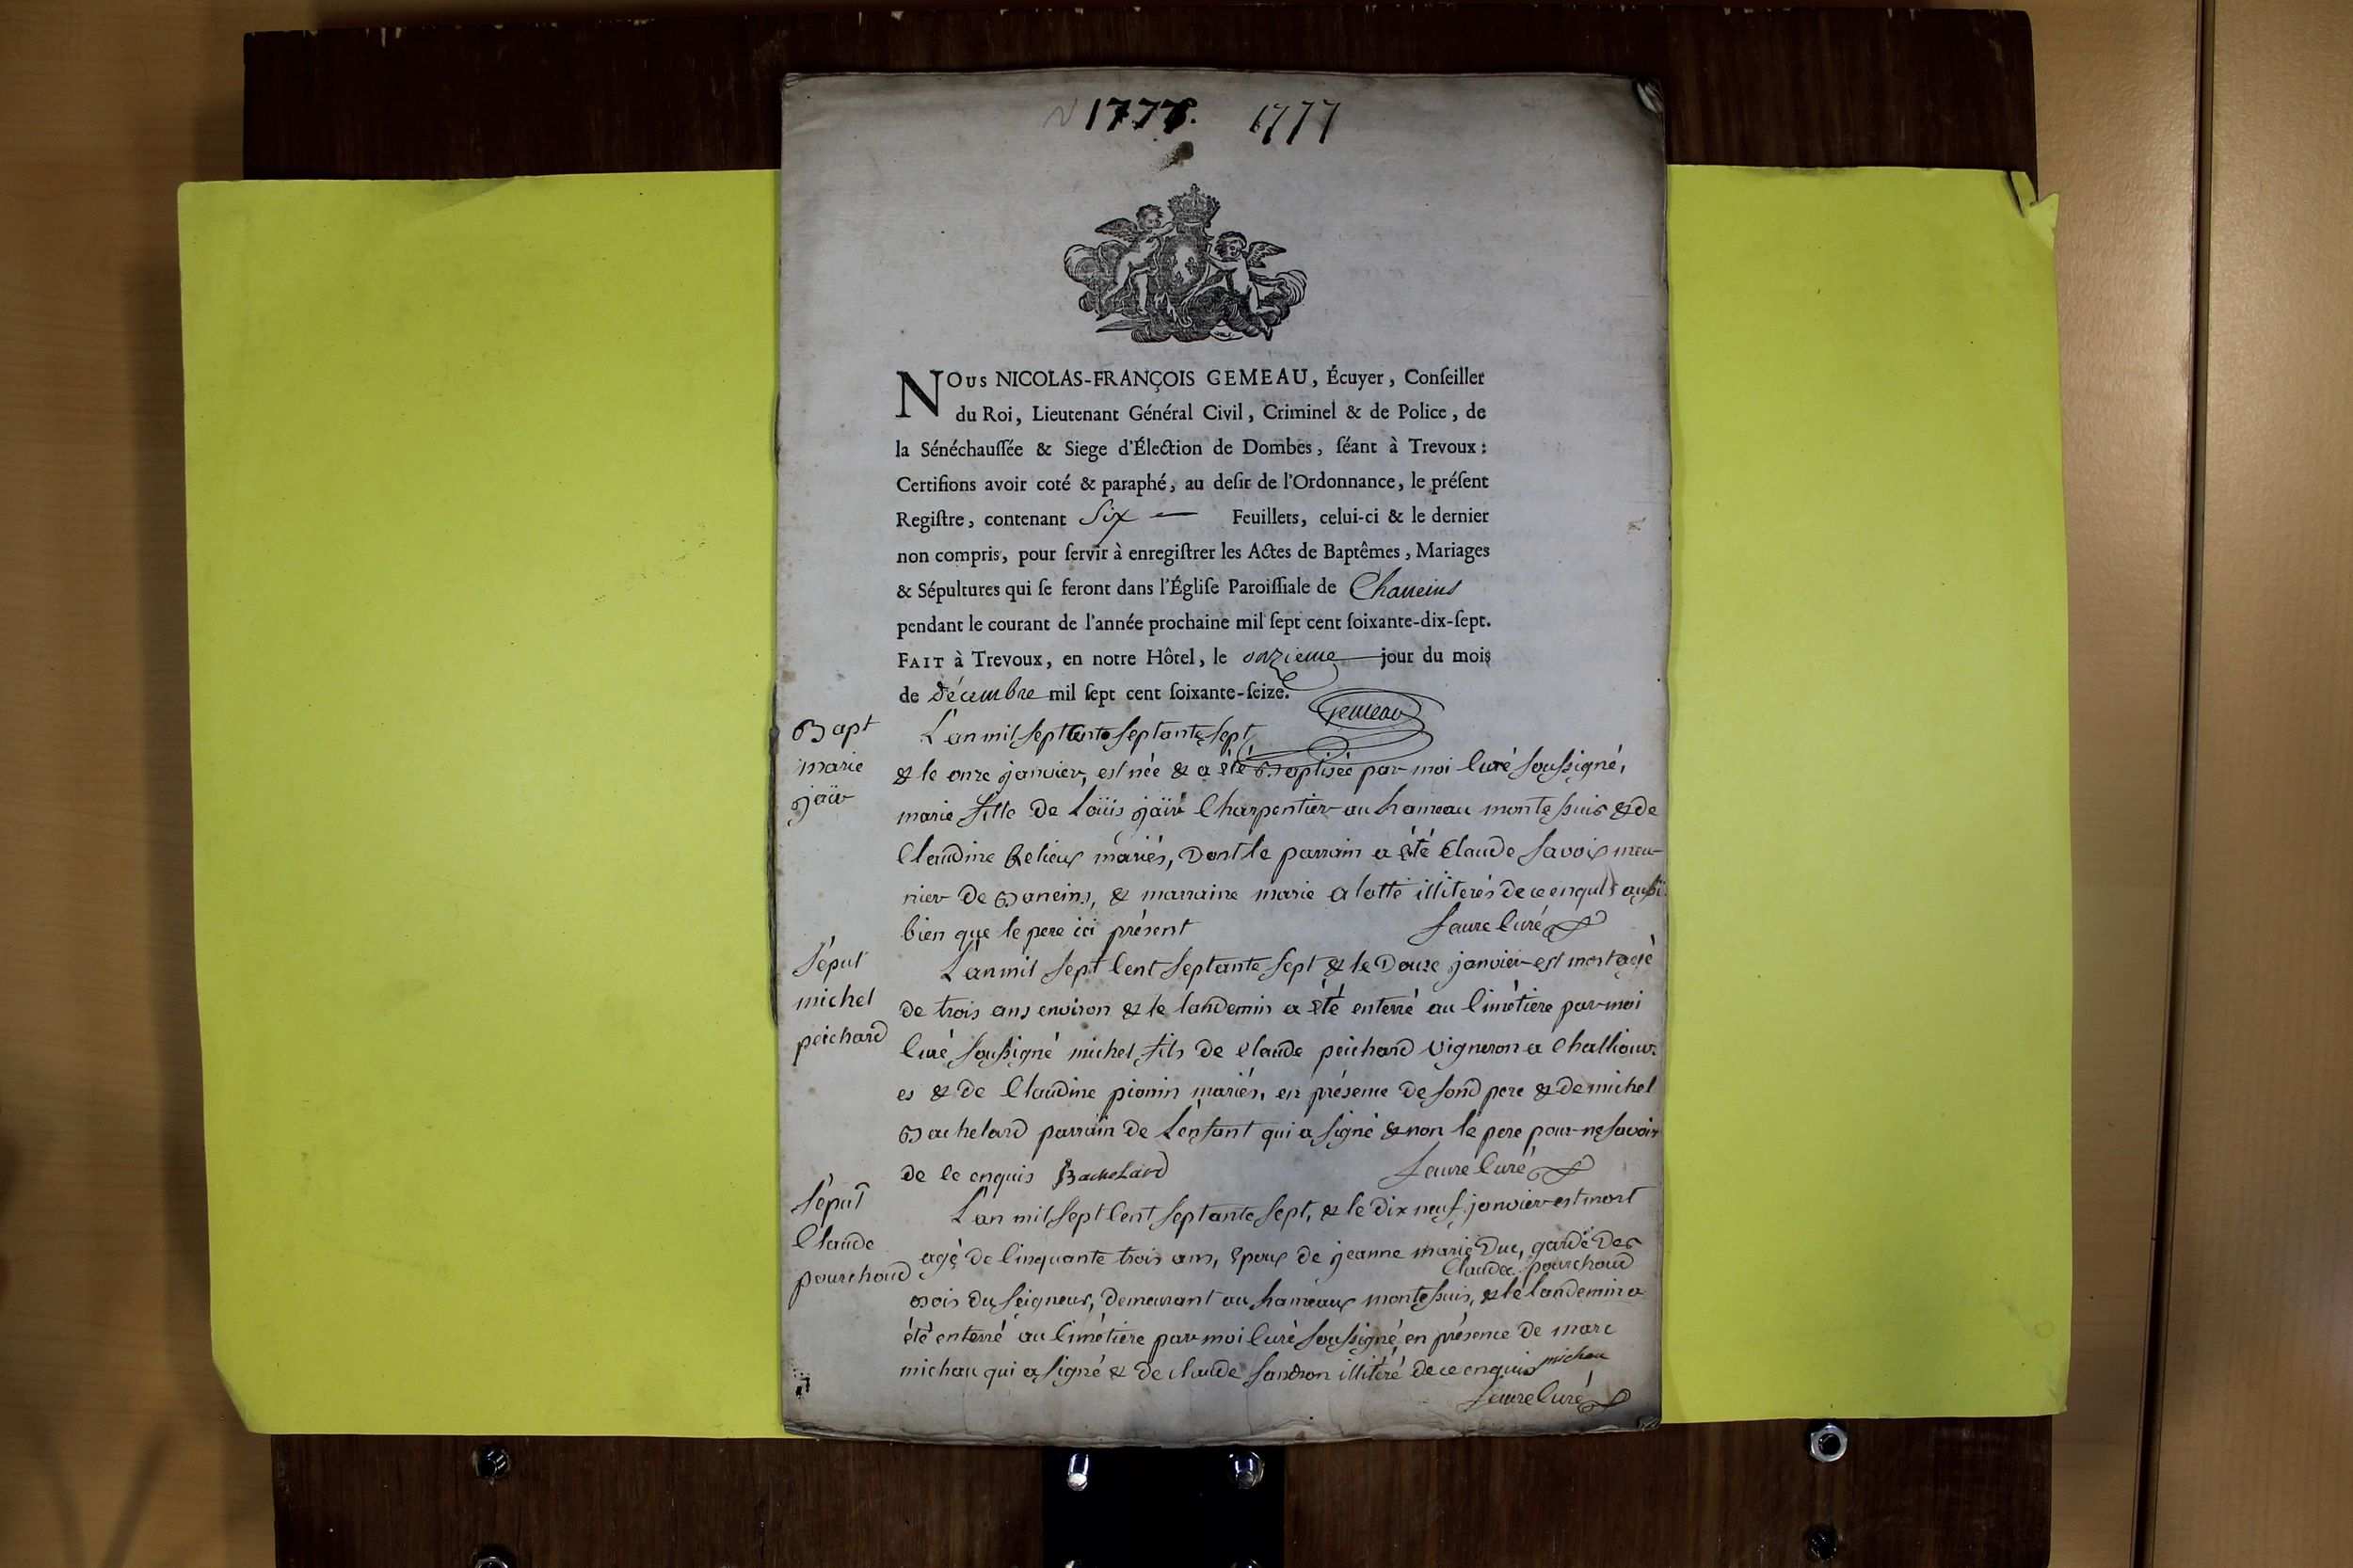 1777. 1777
NOus NICOLAS-FRANÇOIS GEMEAU, Écuyer, Conſeiller
du Roi, Lieutenant Général Civil, Criminel & de Police, de
la Sénéchauſſée & Siege d'Élection de Dombes, ſéant à Trevoux:
Certifions avoir coté & paraphé, au deſir de l'Ordonnance, le préſent
Regiſtre, contenant Six — Feuillets, celui-ci & le dernier
non compris, pour ſervir à enregiſtrer les Actes de Baptêmes, Mariages
& Sépultures qui ſe feront dans l'Égliſe Paroiſſiale de Chaneins
pendant le courant de l'année prochaine mil ſept cent ſoixante-dix-ſept.
FAIT à Trevoux, en notre Hôtel, le onzieme jour du mois
de décembre mil ſept cent ſoixante-ſeize.
Gemeau
Bapt
marie
jaïr
L'an mil sept Cents septante sept
& le onze janvier, est née & a été Baptisée par moi Curé soussigné,
marie fille de Loüis jaïr Charpentier au hameau montessuis & de
Claudine Relieux mariés, Dont le parrain a été Claude Savoix meu-
nier de Baneins, & marraine marie alotte illiterés de ce enquis aussi
bien que le pere ici présent
faure Curé
Sepul
michel
peichard
L'an mil sept Cent septante sept & le Douze janvier est mort agé
de trois ans environ & le landemin a été enterré au Cimétiere par moi
Curé soussigné michel fils de Claude peichard Vigneron a Challiouv-
es & de Claudine pionin mariés, en présence de sond pere & de michel
Bachelard parrain de L'enfant qui a signé & non le pere pour ne savoir
de ce enquis Bachelard
faure Curé
Sepul
Claude
pourchoud
L'an mil sept Cent septante sept, & le Dix neuf janvier est mort
agé de Cinquante trois ans, Epoux de jeanne marie Duc, garde Des
Claude pourchoud
Bois du Seigneur, demeurant au hameaux montessuis, & le landemin a
été enterré au Cimétiere par moi Curé soussigné, en présence de marc
michau qui a signé & de claude sandron illitéré de ce enquis michau
faure Curé